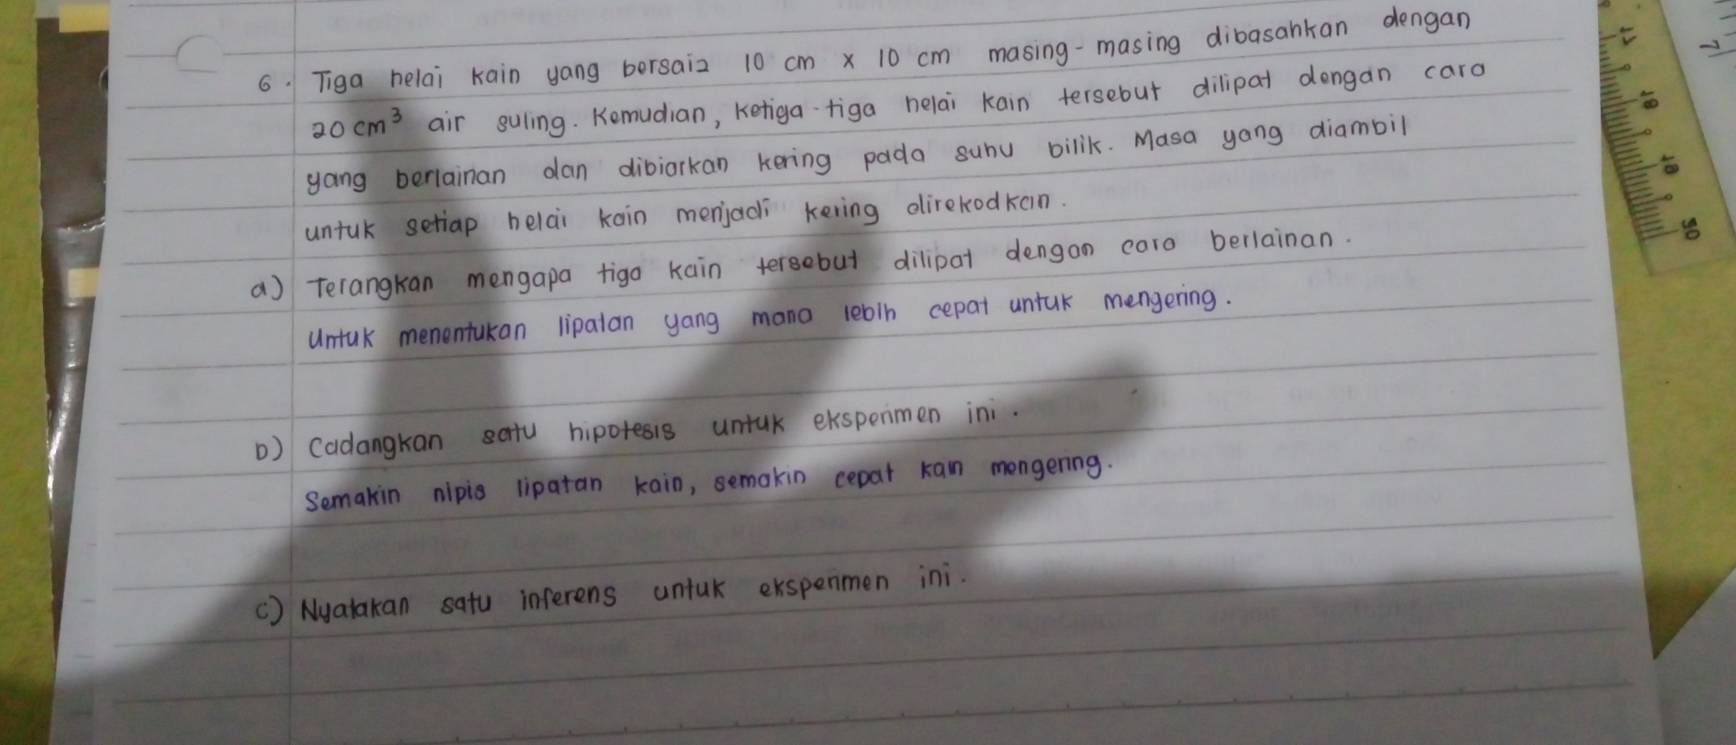 6. Tiga helai kain yang bersaiz 10 cm x 10 cm masing-masing dibasahkan dengan
20 cm³ air suling. Kemudian, ketiga-tiga helai kain tersebut dilipat dengan cara
yang berlainan dan dibiarkan kering pada suhu bilik. Masa yang diambil
untuk setiap helai kain menjadi kering direkodkan.
a) Terangkan mengapa tiga kain tersebut dilipat dengan cara berlainan.
Untuk menentukan lipatan yang mana lebih cepat untuk mengering.
b) Cadangkan satu hipotesis untuk eksperimen ini.
Semakin nipis lipatan kain, semakin cepat kain mengering.
c) Nyatakan satu inferens untuk eksperimen ini.
50